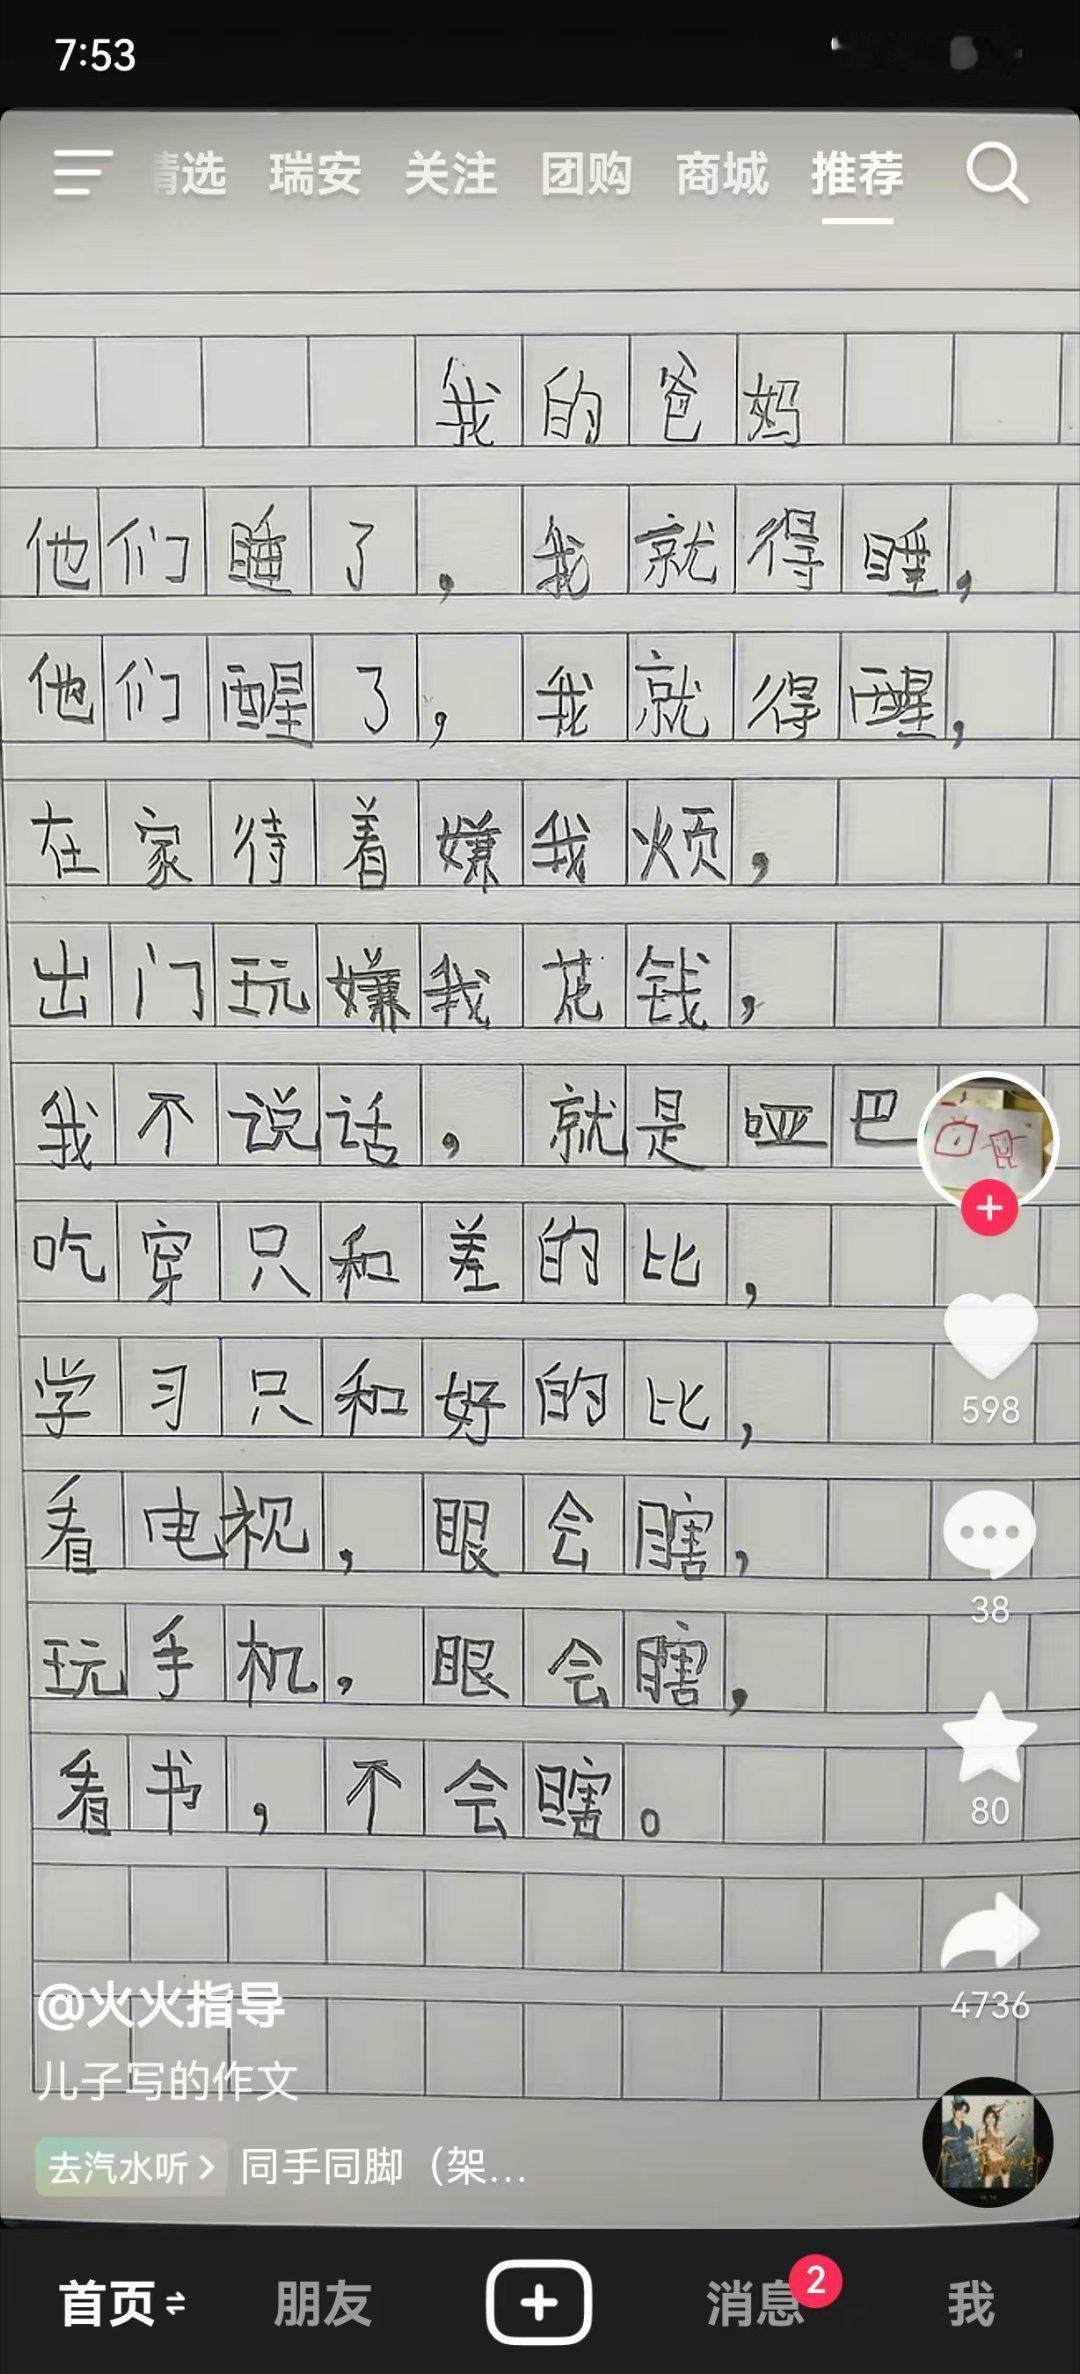 7:53
精选 瑞安 关注 团购 商城 推荐
我的爸妈
他们睡了，我就得睡，
他们醒了，我就得醒，
在家待着嫌我烦，
出门玩嫌我花钱，
我不说话，就是哑巴
吃穿只和差的比，
学习只和好的比，
看电视，眼会瞎，
玩手机，眼会瞎，
看书，不会瞎。
598
38
80
4736
@火火指导
儿子写的作文
去汽水听 > 同手同脚（架...
首页 朋友 消息 2 我